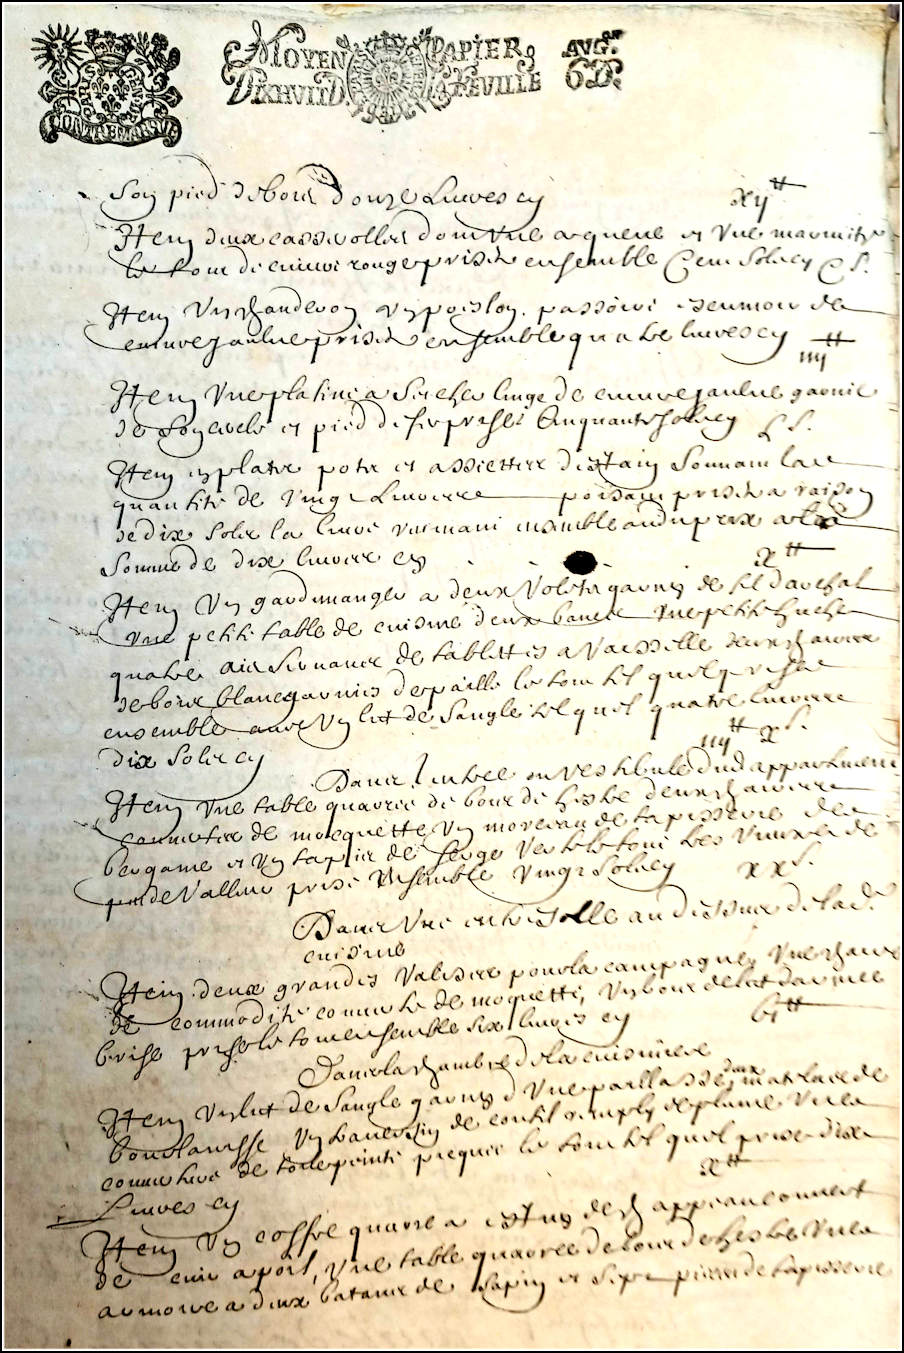 MOYEN PAPIER AVG.ON
DIXHVIT D. LA FEVILLE 6D.
PARIS GEN
CONTREMARQVE
Son pied de bois douze Livres cy xij tt
Item deux casserolles dont une a queue et une marmitte
le tout de cuivre rouge prisé ensemble Cent Solz cy C s.
Item Un chauderon un poislon passoire escumoire de
cuivre jaulne prisé ensemble quatre livres cy iiij tt
Item Une platine a seicher linge de cuivre jaulne garnie
de son et pied de fer prisé Cinquante solz cy L s.
Item en platz potz et assiettes d'estain sonnant la
quantité de vingt Livres poisant prisé a raison
de dix solz la livre revenant ensemble audit prix a la
Somme de dix livres cy x tt
Item Un gardemanger a deux Voletz garny de fil darchal
Une petitte table de cuisine deux bancs Une petitte huche
quatre aix servans de tablettes a Vaisselle deux chaires
de bois blanc garnies de paille le tout tel quel prisé
ensemble avec Un lict de sangle tel quel quatre livres
dix solz cy iiij tt x s.
Dans l'entrée ou vestibule dud appartement
Item Une table quarrée de bois de hestre deux chaires
couvertes de mocquette Un morceau de tapisserie de
bergame et Un tapis de serge Verte le tout Vieux de
peu de Valleur prisé ensemble Vingt Solz cy xx s.
Dans Une entresolle au dessus de la d.
cuisine
Item deux grandes Valises pour la campagne, Une chaire
de commodité couverte de moquette, Un bois de lict d'armée
brisé prisé le tout ensemble six livres cy vj tt
Dans la chambre de la cuisiniere
Item Un lict de sangle garny d'Une paillasse, deux matelas de
bourlanisse Un traversin de coutil remply de plume Une
couverture de toille peinte picquée le tout tel quel prisé dix
Livres cy x tt
Item Un coffre quarré a couvert
de cuir a poil, Une table quarrée de bois de hestre Une
armoire a deux batans de sapin et sept pieces de tapisserie